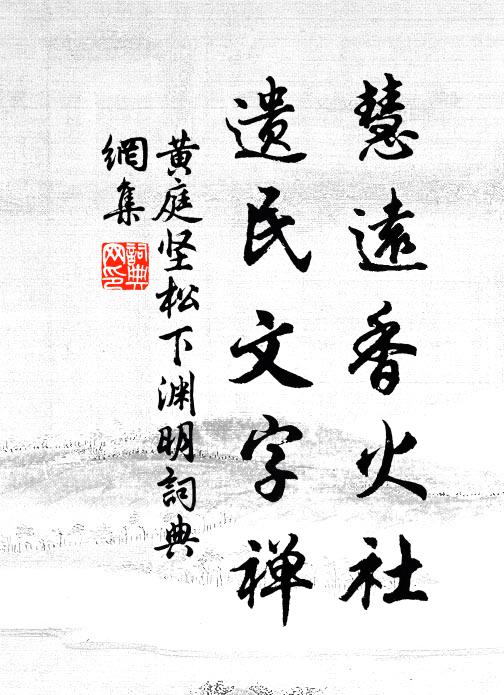 慧遠香火社
遗民文字禅
黄庭坚松下渊明詞典
網集
詞典网印